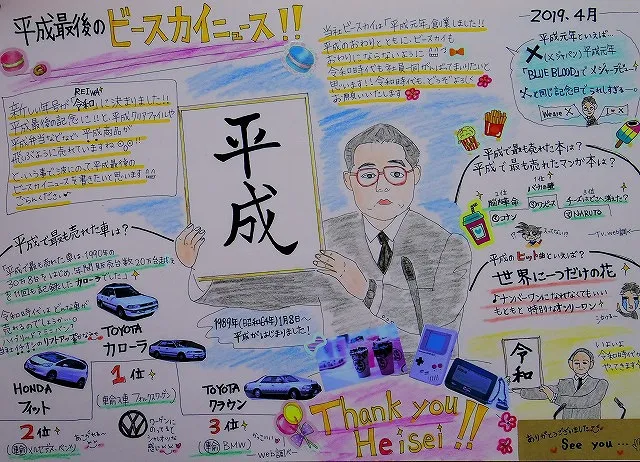 平成最後のビースカイニュース!!
当社ビースカイは「平成元年」創業しました!!
平成のおわりとともに、ビースカイも
おわりにならないように
令和時代も社員一同がんばってまいりたいと
思います!! 令和時代もどうぞよろしく
お願いいたします
2019.4月
平成元年といえば…
X(Xジャパン)平成元年
「BLUE BLOOD」でメジャーデビュー
Xと同じ記念日でうれしすぎる…
We are X
I X
REIWA
新しい年号が「令和」に決まりました!!
平成最後の記念に!!と、平成クリアファイルや
平成弁当などなど平成商品が
飛ぶように売れていますね
という事で波にのって平成最後の
ビースカイニュースを書きたいと思います
ごらんください
平成
平成で最も売れた本は?
平成で最も売れたマンガ本は?
1位
バカの壁
①ワンピース
2位
脳内革命
②コナン
3位
チーズはどこへ消えた?
③NARUTO
TV調べ
平成のヒット曲といえば?
世界に一つだけの花
♪ナンバーワンにならなくてもいい
もともと特別なオンリーワン♪
平成で最も売れた車は?
平成で最も売れた車は、1990年の
30万8台をはじめ年間販売台数20万台超え
を11回も記録したカローラでした
令和時代はどんな車が
売れるのでしょう…
ハイブリッド?
1位
TOYOTA
カローラ
(車輸入車 フォルクスワーゲン)
HONDA
フィット
2位
(車輸 メルセデス・ベンツ)
TOYOTA
クラウン
3位
(車輸 BMW)
Web調べ
1989年(昭和64年)1月8日〜
平成がはじまりました!
Thank you
Heisei!!
令和
いよいよ
令和時代が
やってきます
ありがとうございました
See you…